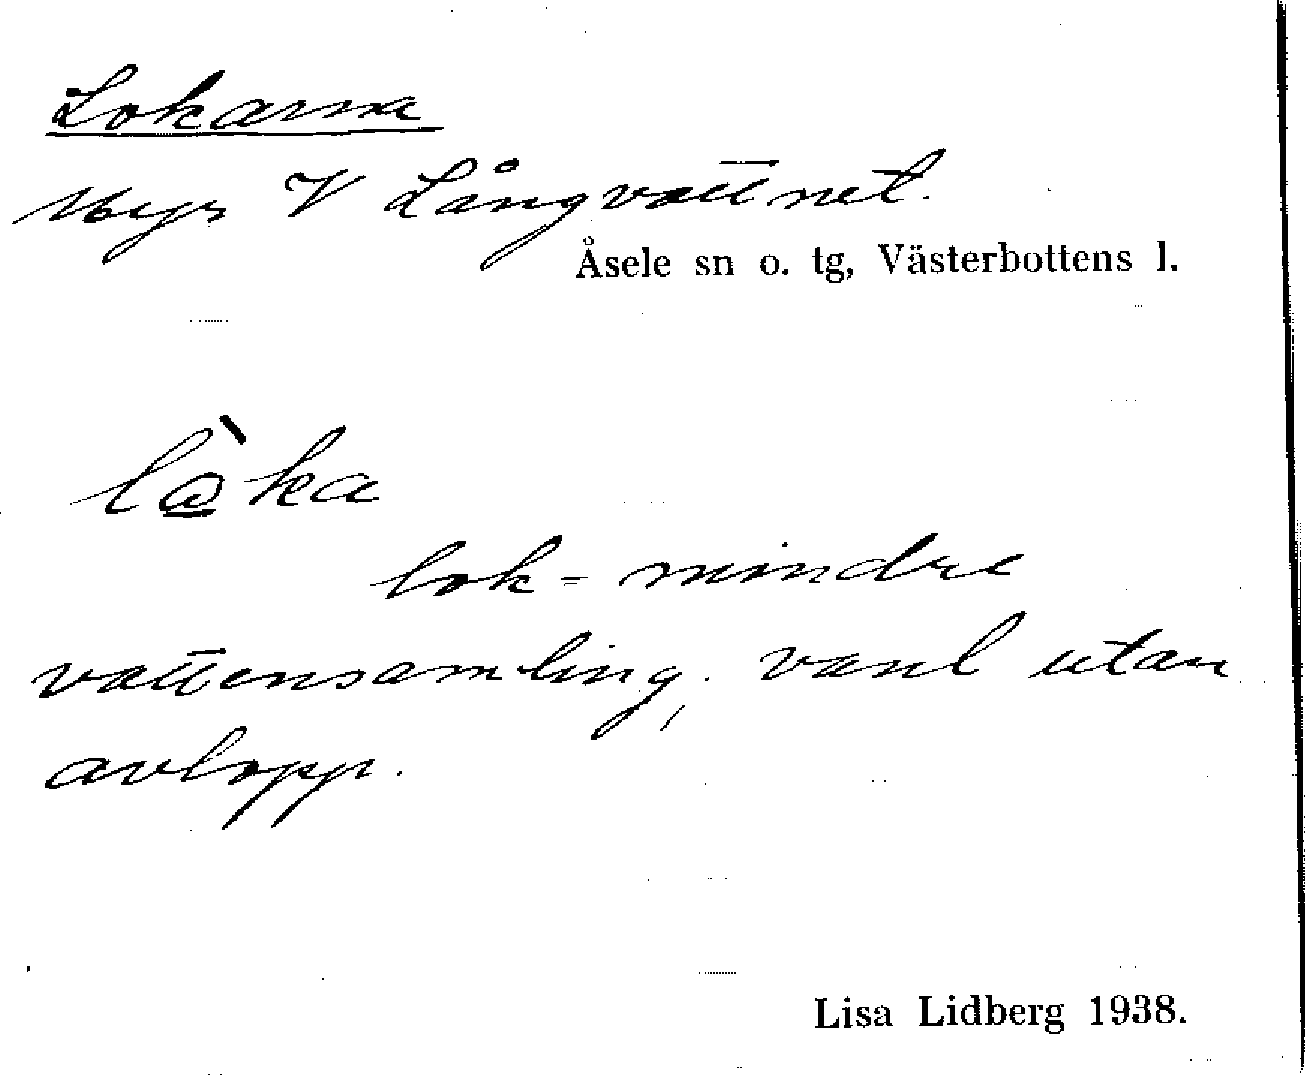 Lokarna
Myr V Långvattnet.
Åsele sn o. tg, Västerbottens l.
lò̲ka
lok - mindre
vattensamling, vanl utan
avlopp.
Lisa Lidberg 1938.